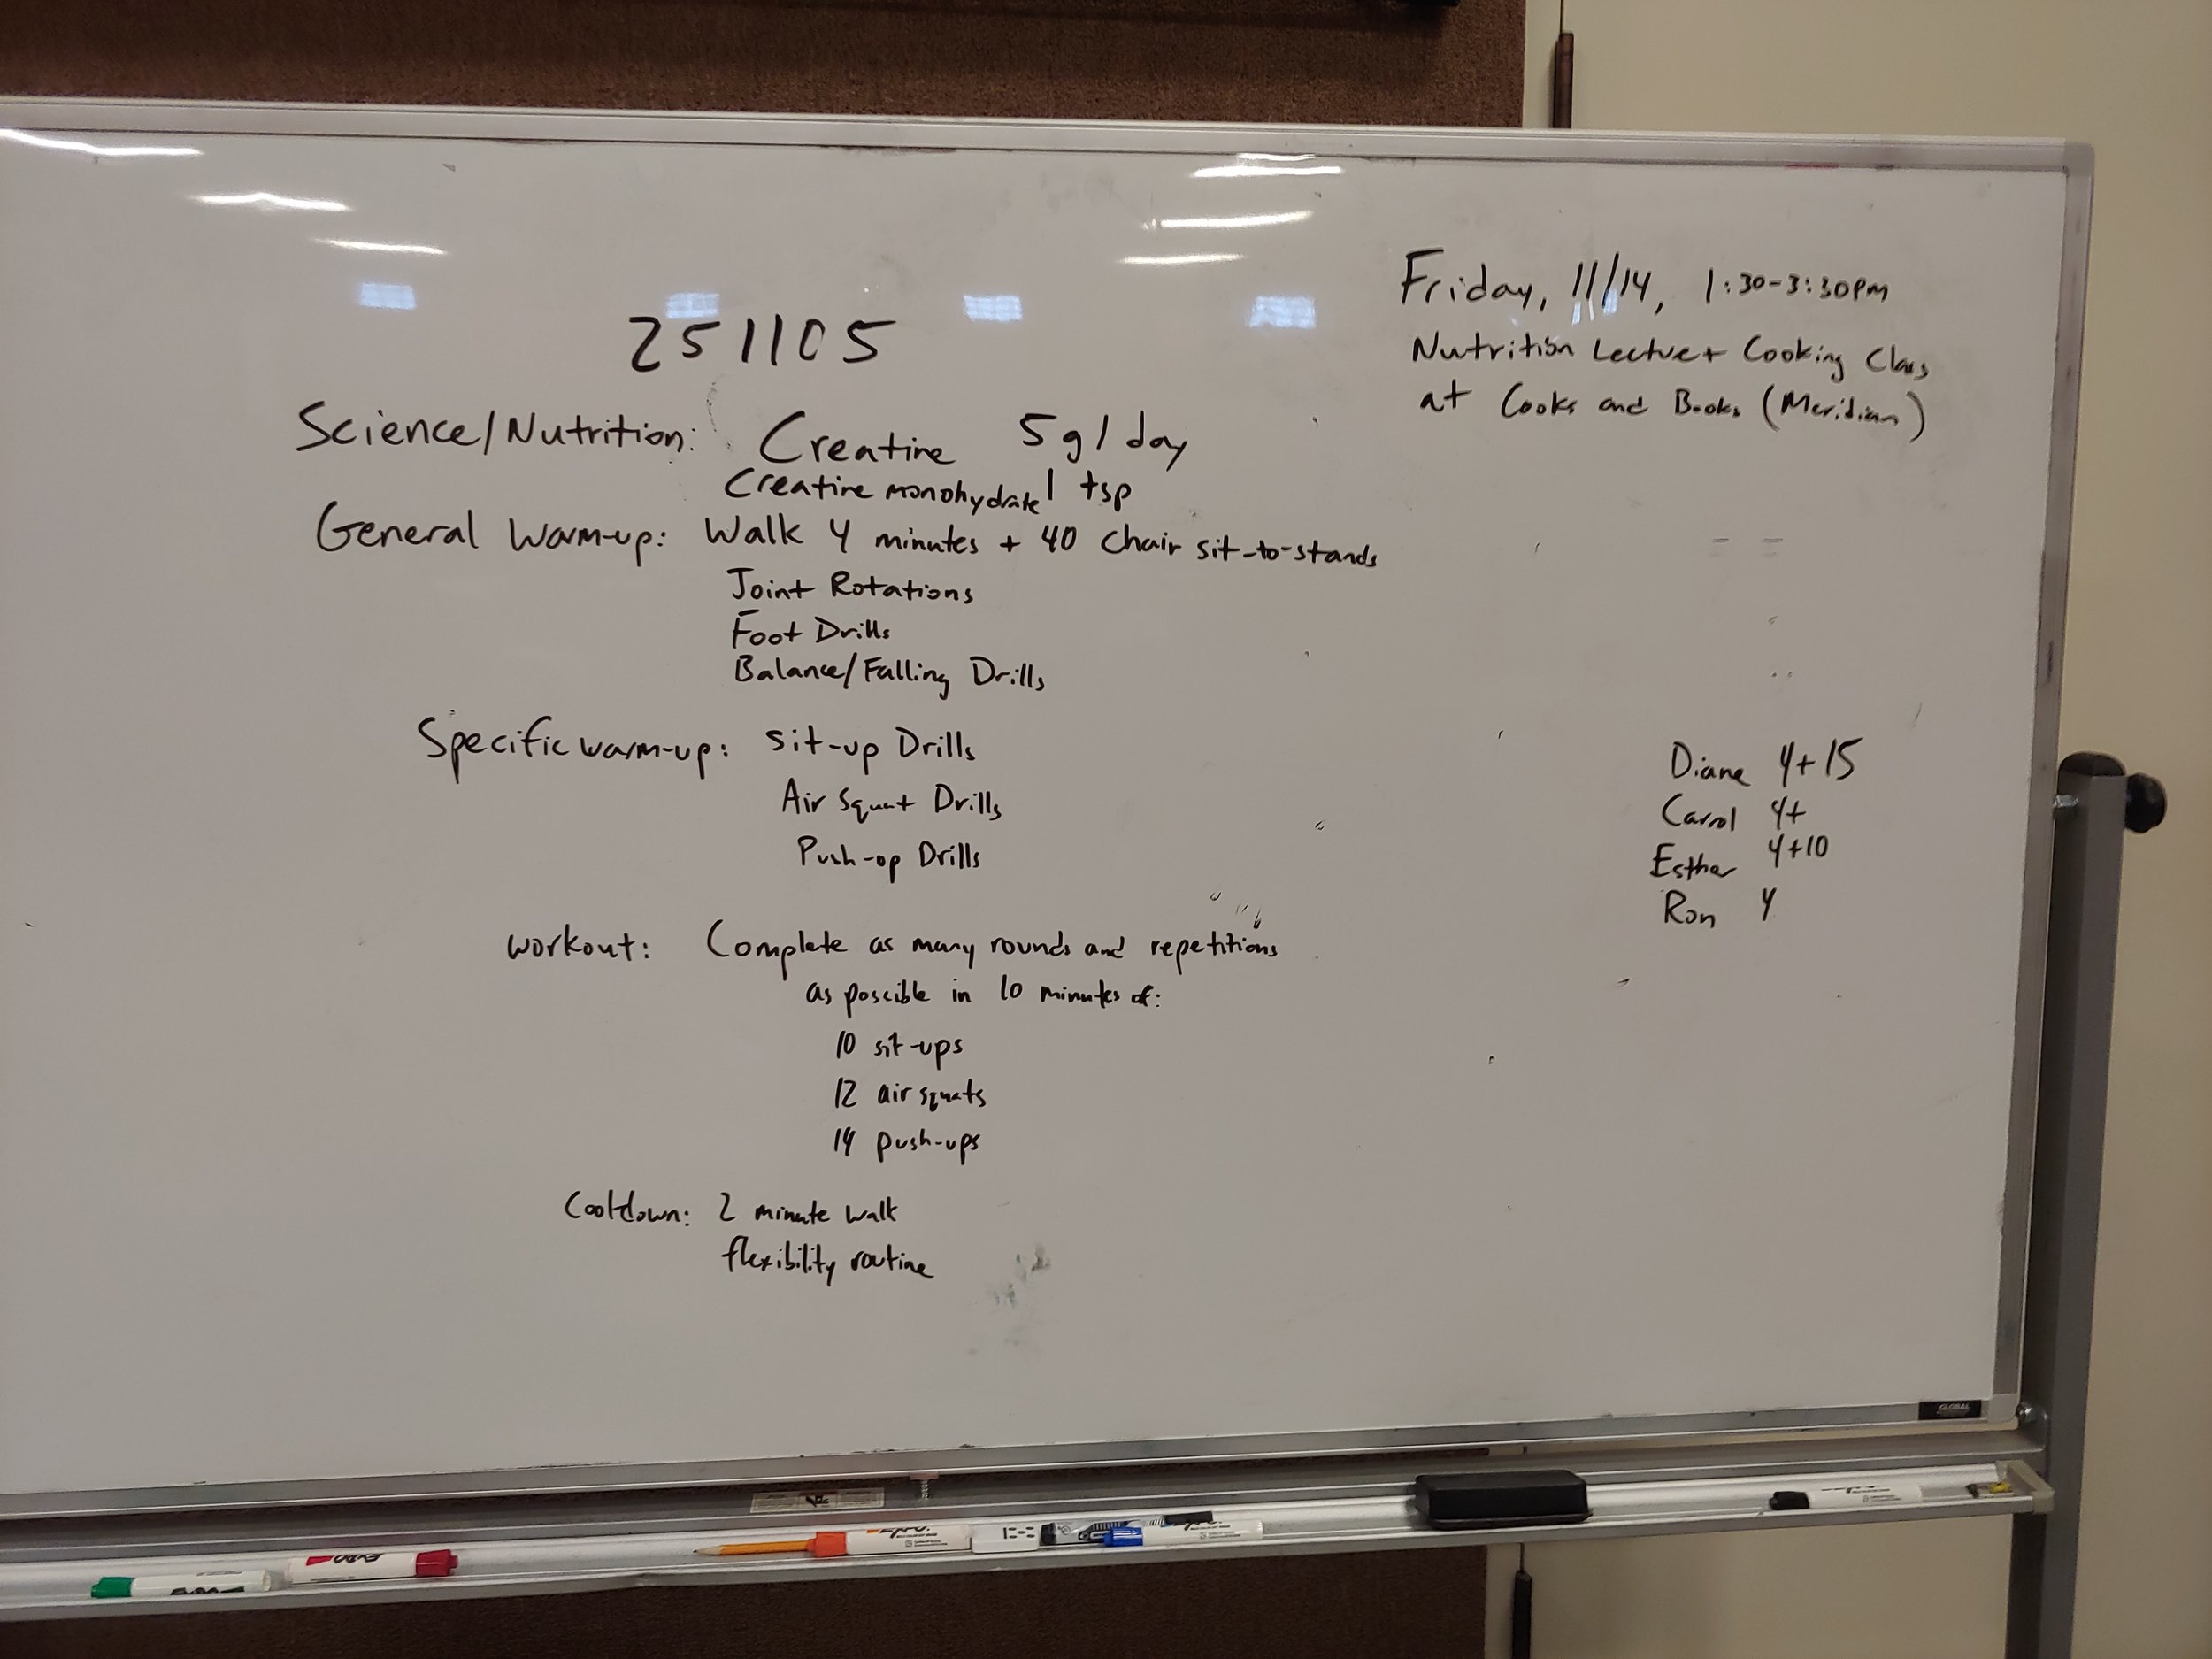 251105
Science/Nutrition: Creatine 5g/day
Creatine monohydrate 1 tsp
General Warm-up: Walk 4 minutes + 40 chair sit-to-stands
Joint Rotations
Foot Drills
Balance/Falling Drills
Specific warm-up: Sit-up Drills
Air Squat Drills
Push-up Drills
Workout: Complete as many rounds and repetitions
as poscible in 10 minutes of:
10 sit-ups
12 air squats
14 push-ups
Cooldown: 2 minute walk
flexibility routine
Friday, 11/14, 1:30-3:30pm
Nutrition Lecture + Cooking Class
at Cooks and Books (Meridian)
Diane 4+15
Carol 4+
Esther 4+10
Ron 4
GLOBAL
EXPO
EXPO